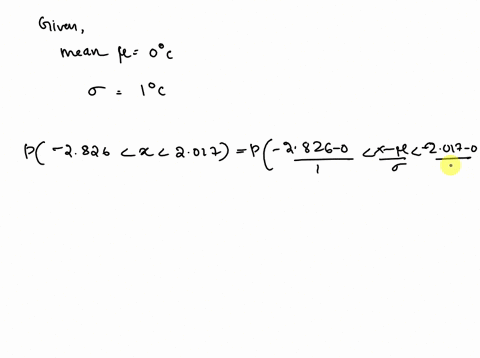 Given,
mean μ = 0°c
σ = 1°c
P(-2.826 < x < 2.017) = P(-2.826-0/1 < x-μ/σ < -2.017-0/